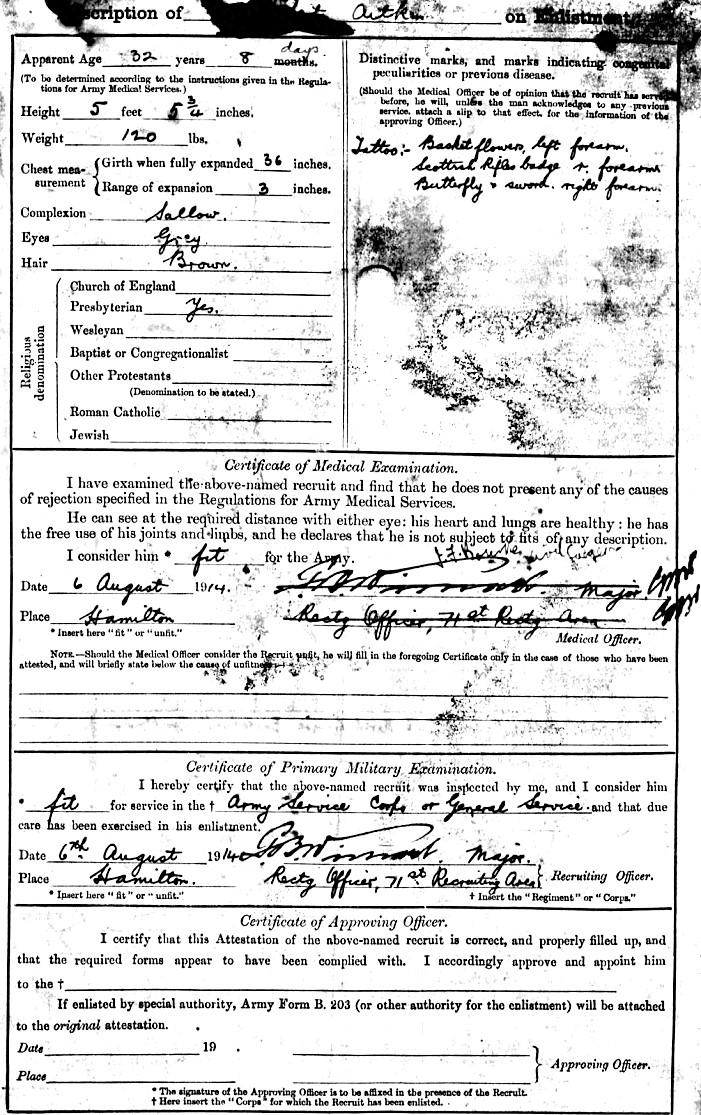 scription of Aitken on Enlistment
Apparent Age 32 years 8 days months.
(To be determined according to the instructions given in the Regula-
tions for Army Medical Services.)
Height 5 feet 5 3/4 inches.
Weight 120 lbs.
Chest mea-
surement
Girth when fully expanded 36 inches.
Range of expansion 3 inches.
Complexion Sallow.
Eyes Grey
Hair Brown.
Religious denomination
Church of England
Presbyterian Yes.
Wesleyan
Baptist or Congregationalist
Other Protestants
(Denomination to be stated.)
Roman Catholic
Jewish
Distinctive marks, and marks indicating congenital
peculiarities or previous disease.
(Should the Medical Officer be of opinion that the recruit has served
before, he will, unless the man acknowledges to any previous
service, attach a slip to that effect, for the information of the
approving Officer.)
Tattoo:- Basket flowers, left forearm.
Scottish Rifles badge r. forearm
Butterfly & sword. right forearm.
Certificate of Medical Examination.
I have examined the above-named recruit and find that he does not present any of the causes
of rejection specified in the Regulations for Army Medical Services.
He can see at the required distance with either eye: his heart and lungs are healthy: he has
the free use of his joints and limbs, and he declares that he is not subject to fits of any description.
I consider him * fit for the Army.
Date 6 August 1914. Major
Place Hamilton Rectg Officer, 71st Rectg Area
* Insert here "fit" or "unfit." Medical Officer.
NOTE.—Should the Medical Officer consider the Recruit unfit, he will fill in the foregoing Certificate only in the case of those who have been
attested, and will briefly state below the cause of unfitness
Certificate of Primary Military Examination.
I hereby certify that the above-named recruit was inspected by me, and I consider him
* fit for service in the † Army Service Corps or General Service and that due
care has been exercised in his enlistment.
Date 6th August 1914 Major.
Place Hamilton. Rectg Officer, 71st Recruiting Area Recruiting Officer.
* Insert here "fit" or "unfit." † Insert the "Regiment" or "Corps."
Certificate of Approving Officer.
I certify that this Attestation of the above-named recruit is correct, and properly filled up, and
that the required forms appear to have been complied with. I accordingly approve and appoint him
to the †
If enlisted by special authority, Army Form B. 203 (or other authority for the enlistment) will be attached
to the original attestation.
Date 19 .
Approving Officer.
Place
* The signature of the Approving Officer is to be affixed in the presence of the Recruit.
† Here insert the "Corps" for which the Recruit has been enlisted.